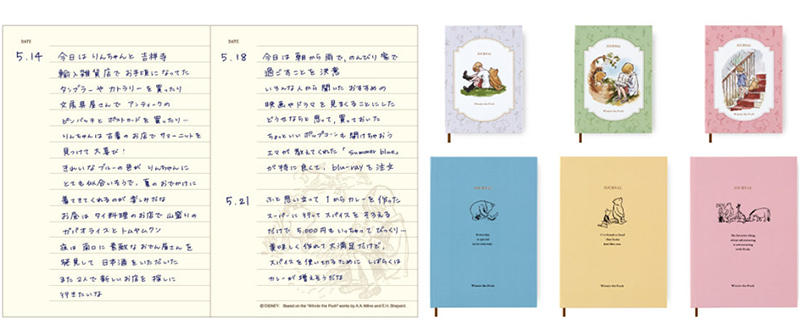 DATE
5.14
今日は りんちゃんと 吉祥寺
輸入雑貨店で お手頃になってた
タンブラーや カトラリーを 買ったり
文房具屋さんで アンティークの
ピンバッチと ポストカードを 買ったり…
りんちゃんは 古着の お店で サマーニットを
見つけて 大喜び!
きれいな ブルーの 色が りんちゃんに
とても 似合いそうで、夏の おでかけに
着てきてくれるのが 楽しみだな
お昼は タイ料理の お店で 山盛りの
ガパオライスと トムヤムクン
夜は 南口に 素敵な おでん屋さんを
発見して 日本酒を いただいた
また 2人で 新しい お店を 探しに
行きたいな
DATE
5.18
今日は 朝から 雨で、のんびり 家で
過ごすことを 決意
いろんな人から 聞いた おすすめの
映画や ドラマを 見まくることにした
どうせならと 思って、買っておいた
ちょっといい ポップコーンも 開けちゃおう
エマが 教えてくれた 「Summer blue」
が 特に 良くて、blu-rayを 注文
5.21
ふと 思い立って 1から カレーを 作った
スーパーに 行って スパイスを そろえる
だけで 5,000円も いっちゃって びっくり…
美味しく 作れて 大満足だけど、
スパイスを 使い切るために しばらくは
カレーが 増えそうだな
©DISNEY. Based on the "Winnie the Pooh" works by A.A. Milne and E.H. Shepard.
JOURNAL
Winnie the Pooh
JOURNAL
Winnie the Pooh
JOURNAL
Winnie the Pooh
JOURNAL
Winnie the Pooh
JOURNAL
Winnie the Pooh
JOURNAL
Winnie the Pooh